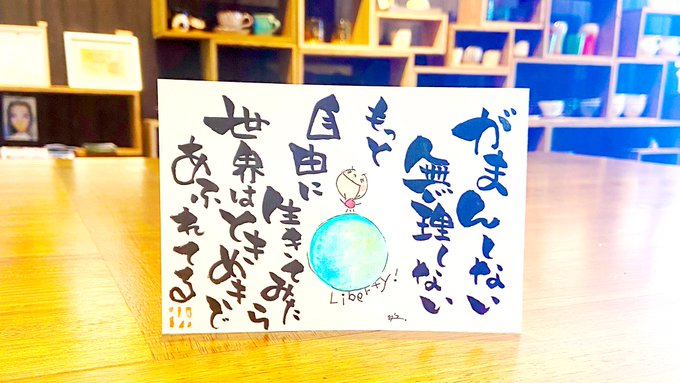 がまんしない
無理しない
もっと
自由に
生きてみたら
世界はときめきで
あふれてる
Liberty!